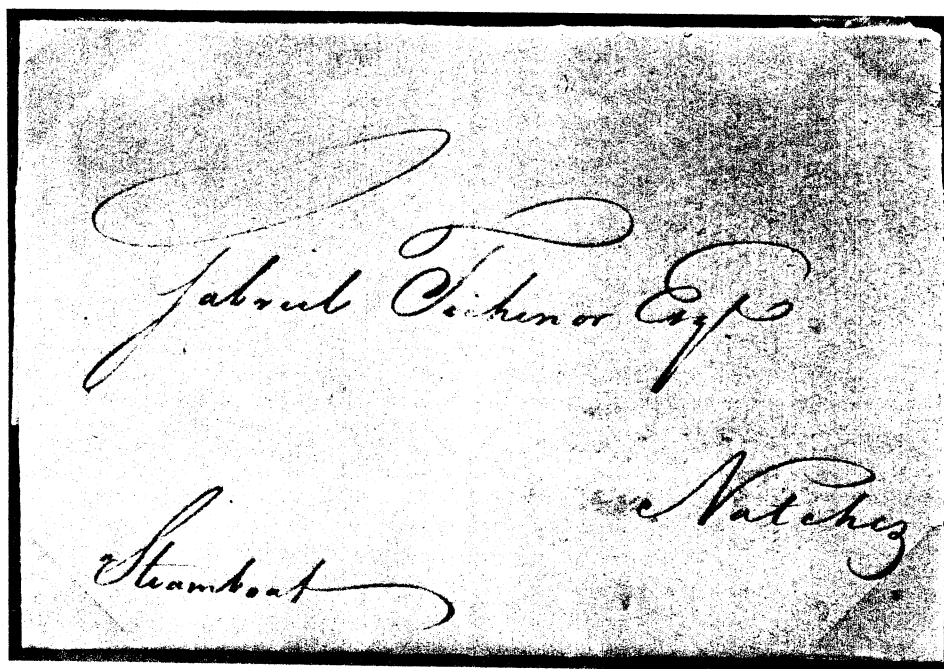 Gabriel Tichenor Esqr
Natchez
Steamboat